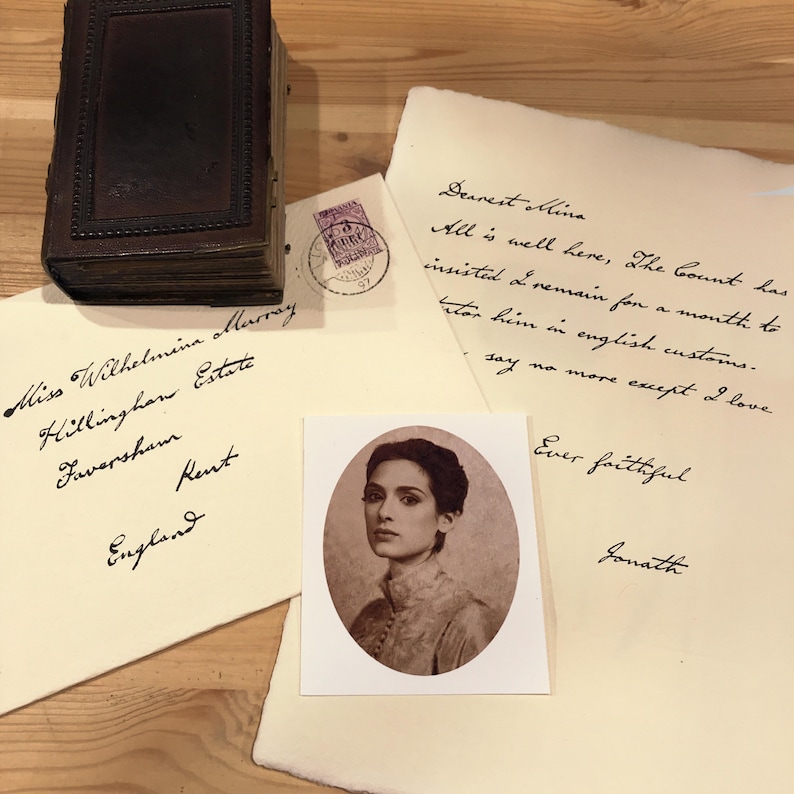 ROMANIA
3
LONDON
97
Miss Wilhelmina Murray
Hillingham Estate
Faversham
Kent
England
Dearest Mina
All is well here, The Count has
insisted I remain for a month to
tutor him in english customs.
say no more except I love
Ever faithful
Jonath